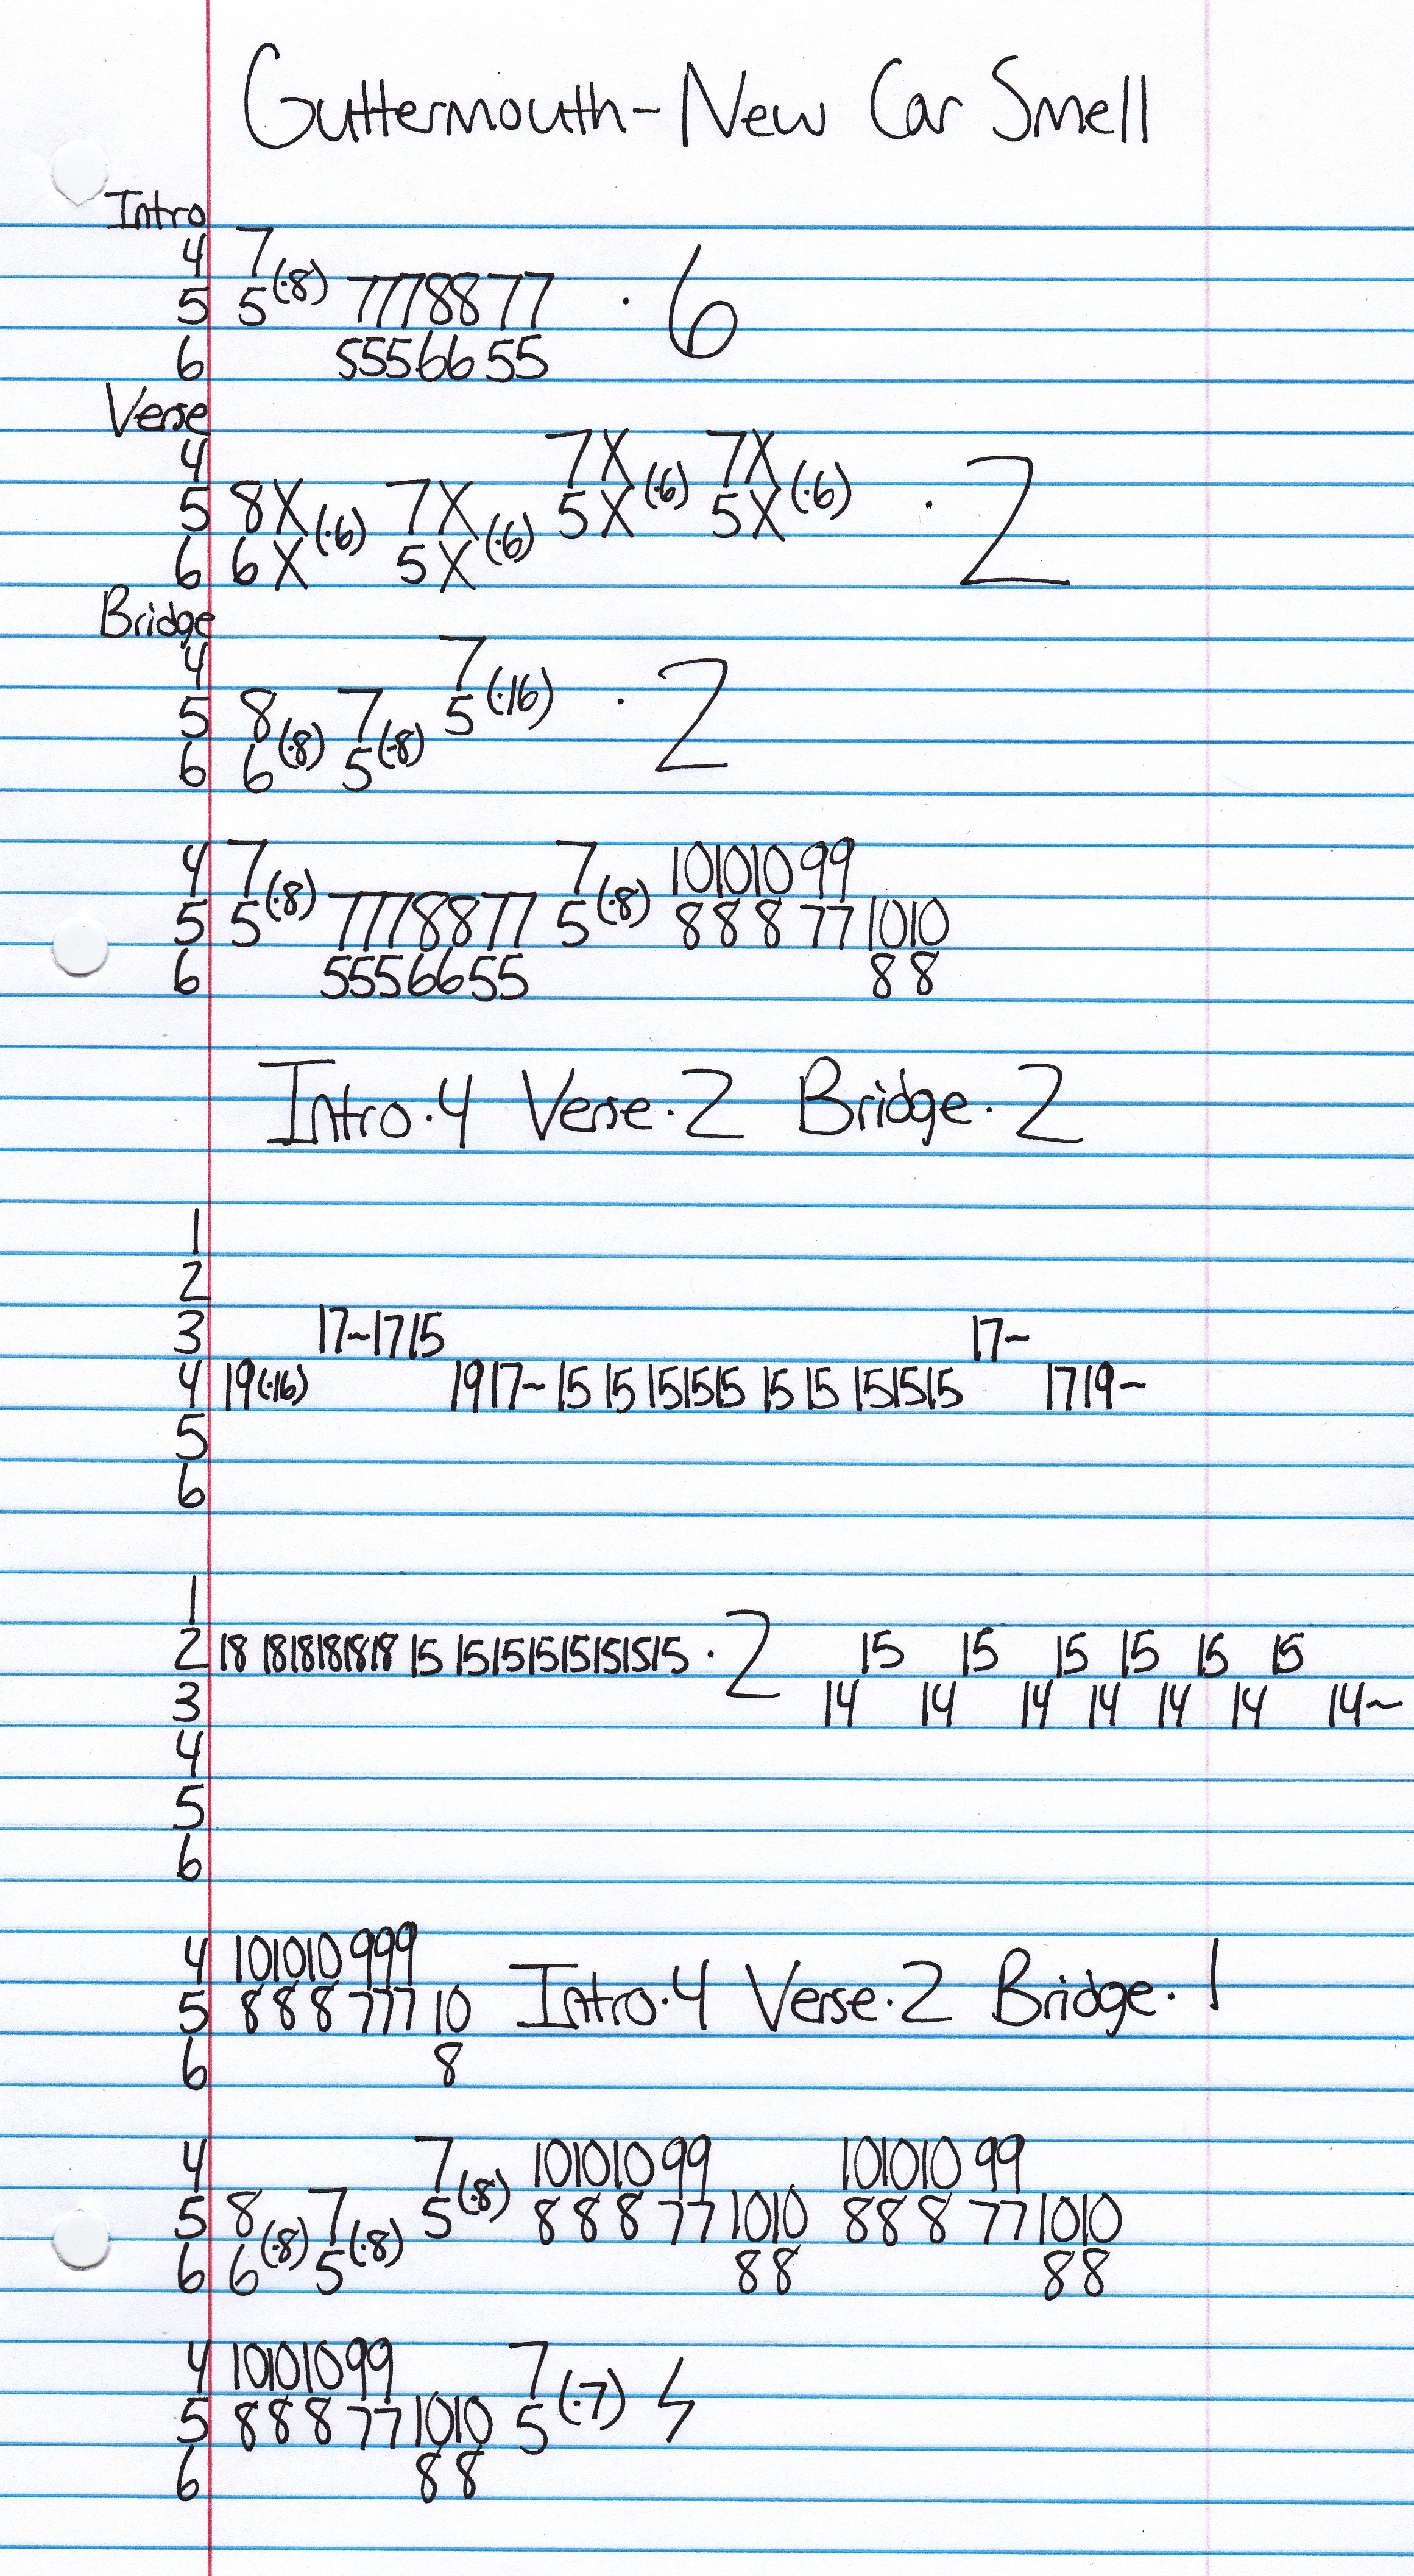 Guttermouth - New Car Smell
Intro
4 7
5 5(·8) 7778877 · 6
6 5556655
Verse
4 7X 7X
5 8X 7X 5X(·6) 5X(·6) · 2
6 6X(·6) 5X(·6)
Bridge
4 7
5 8 7 5(·16) · 2
6 6(·8) 5(·8)
4 7 7 101010 99
5 5(·8) 7778877 5(·8) 888 77 1010
6 5556655 88
Intro·4 Verse·2 Bridge·2
1
2
3 17~1715 17~
4 19(·16) 1917~ 15 15 151515 15 15 151515 1719~
5
6
1
2 18 1818181818 15 15151515151515 · 2 15 15 15 15 15 15
3 14 14 14 14 14 14 14~
4
5
6
4 101010 999
5 888 777 10 Intro·4 Verse·2 Bridge·1
6 8
4 7 101010 99 101010 99
5 8 7 5(·8) 888 77 1010 888 77 1010
6 6(·8) 5(·8) 88 88
4 101010 99 7
5 888 77 1010 5(·7)
6 88